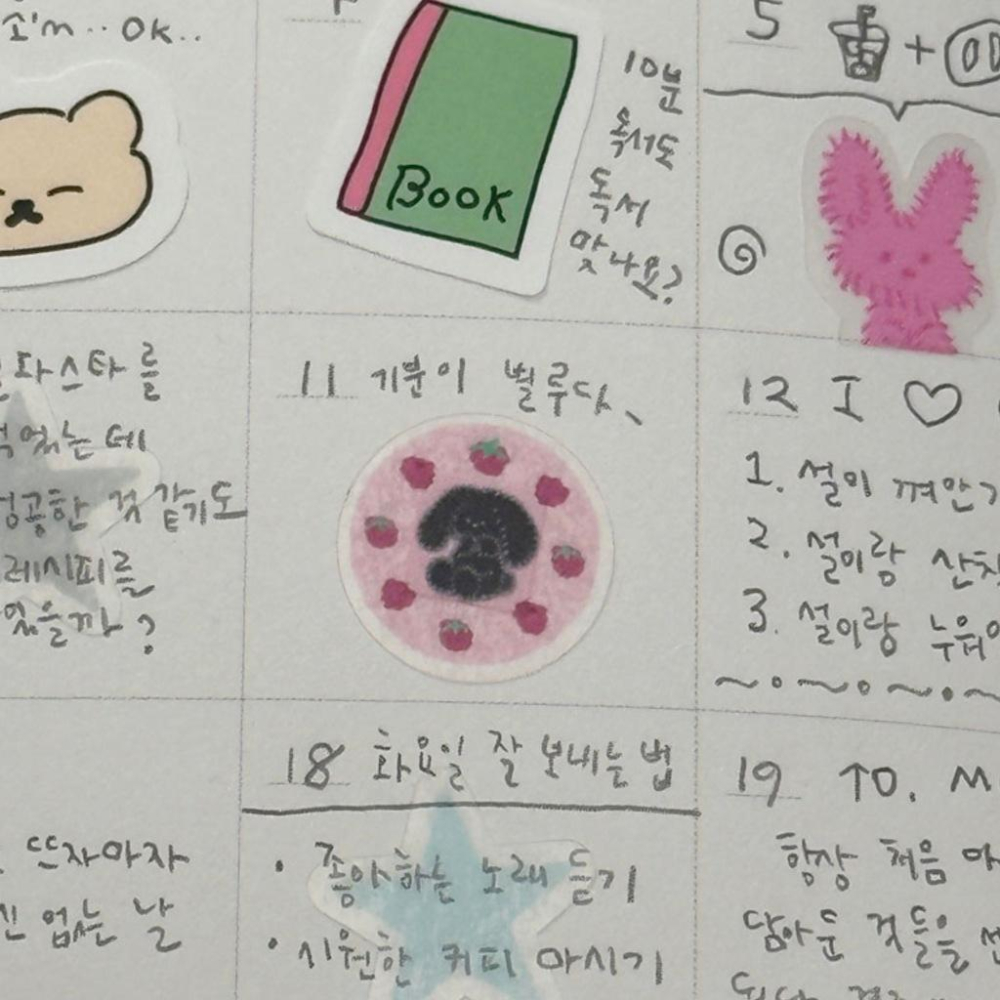 I'm.. OK..
BOOK
10분
독서도
독서
맞나요?
5
+
파스타를
있는데
성공한 것 같기도
레시피를
있을까?
11 기분이 별루다、
12 I ♡
1. 설이 껴안기
2. 설이랑 산책
3. 설이랑 누워
뜨자마자
없는 날
18 화요일 잘 보내는 법
· 좋아하는 노래 듣기
· 시원한 커피 마시기
19 TO. M
항상 처음 마
담아둔 것들을